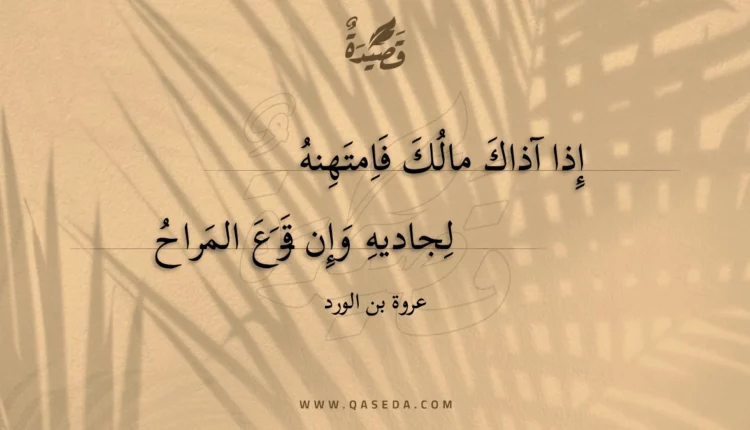 قَصِيْدَةٌ
إِذا آذاكَ مالُكَ فَاِمتَهِنهُ
لِجاديهِ وَإِن قَرَعَ المَراحُ
عروة بن الورد
WWW.QASEDA.COM